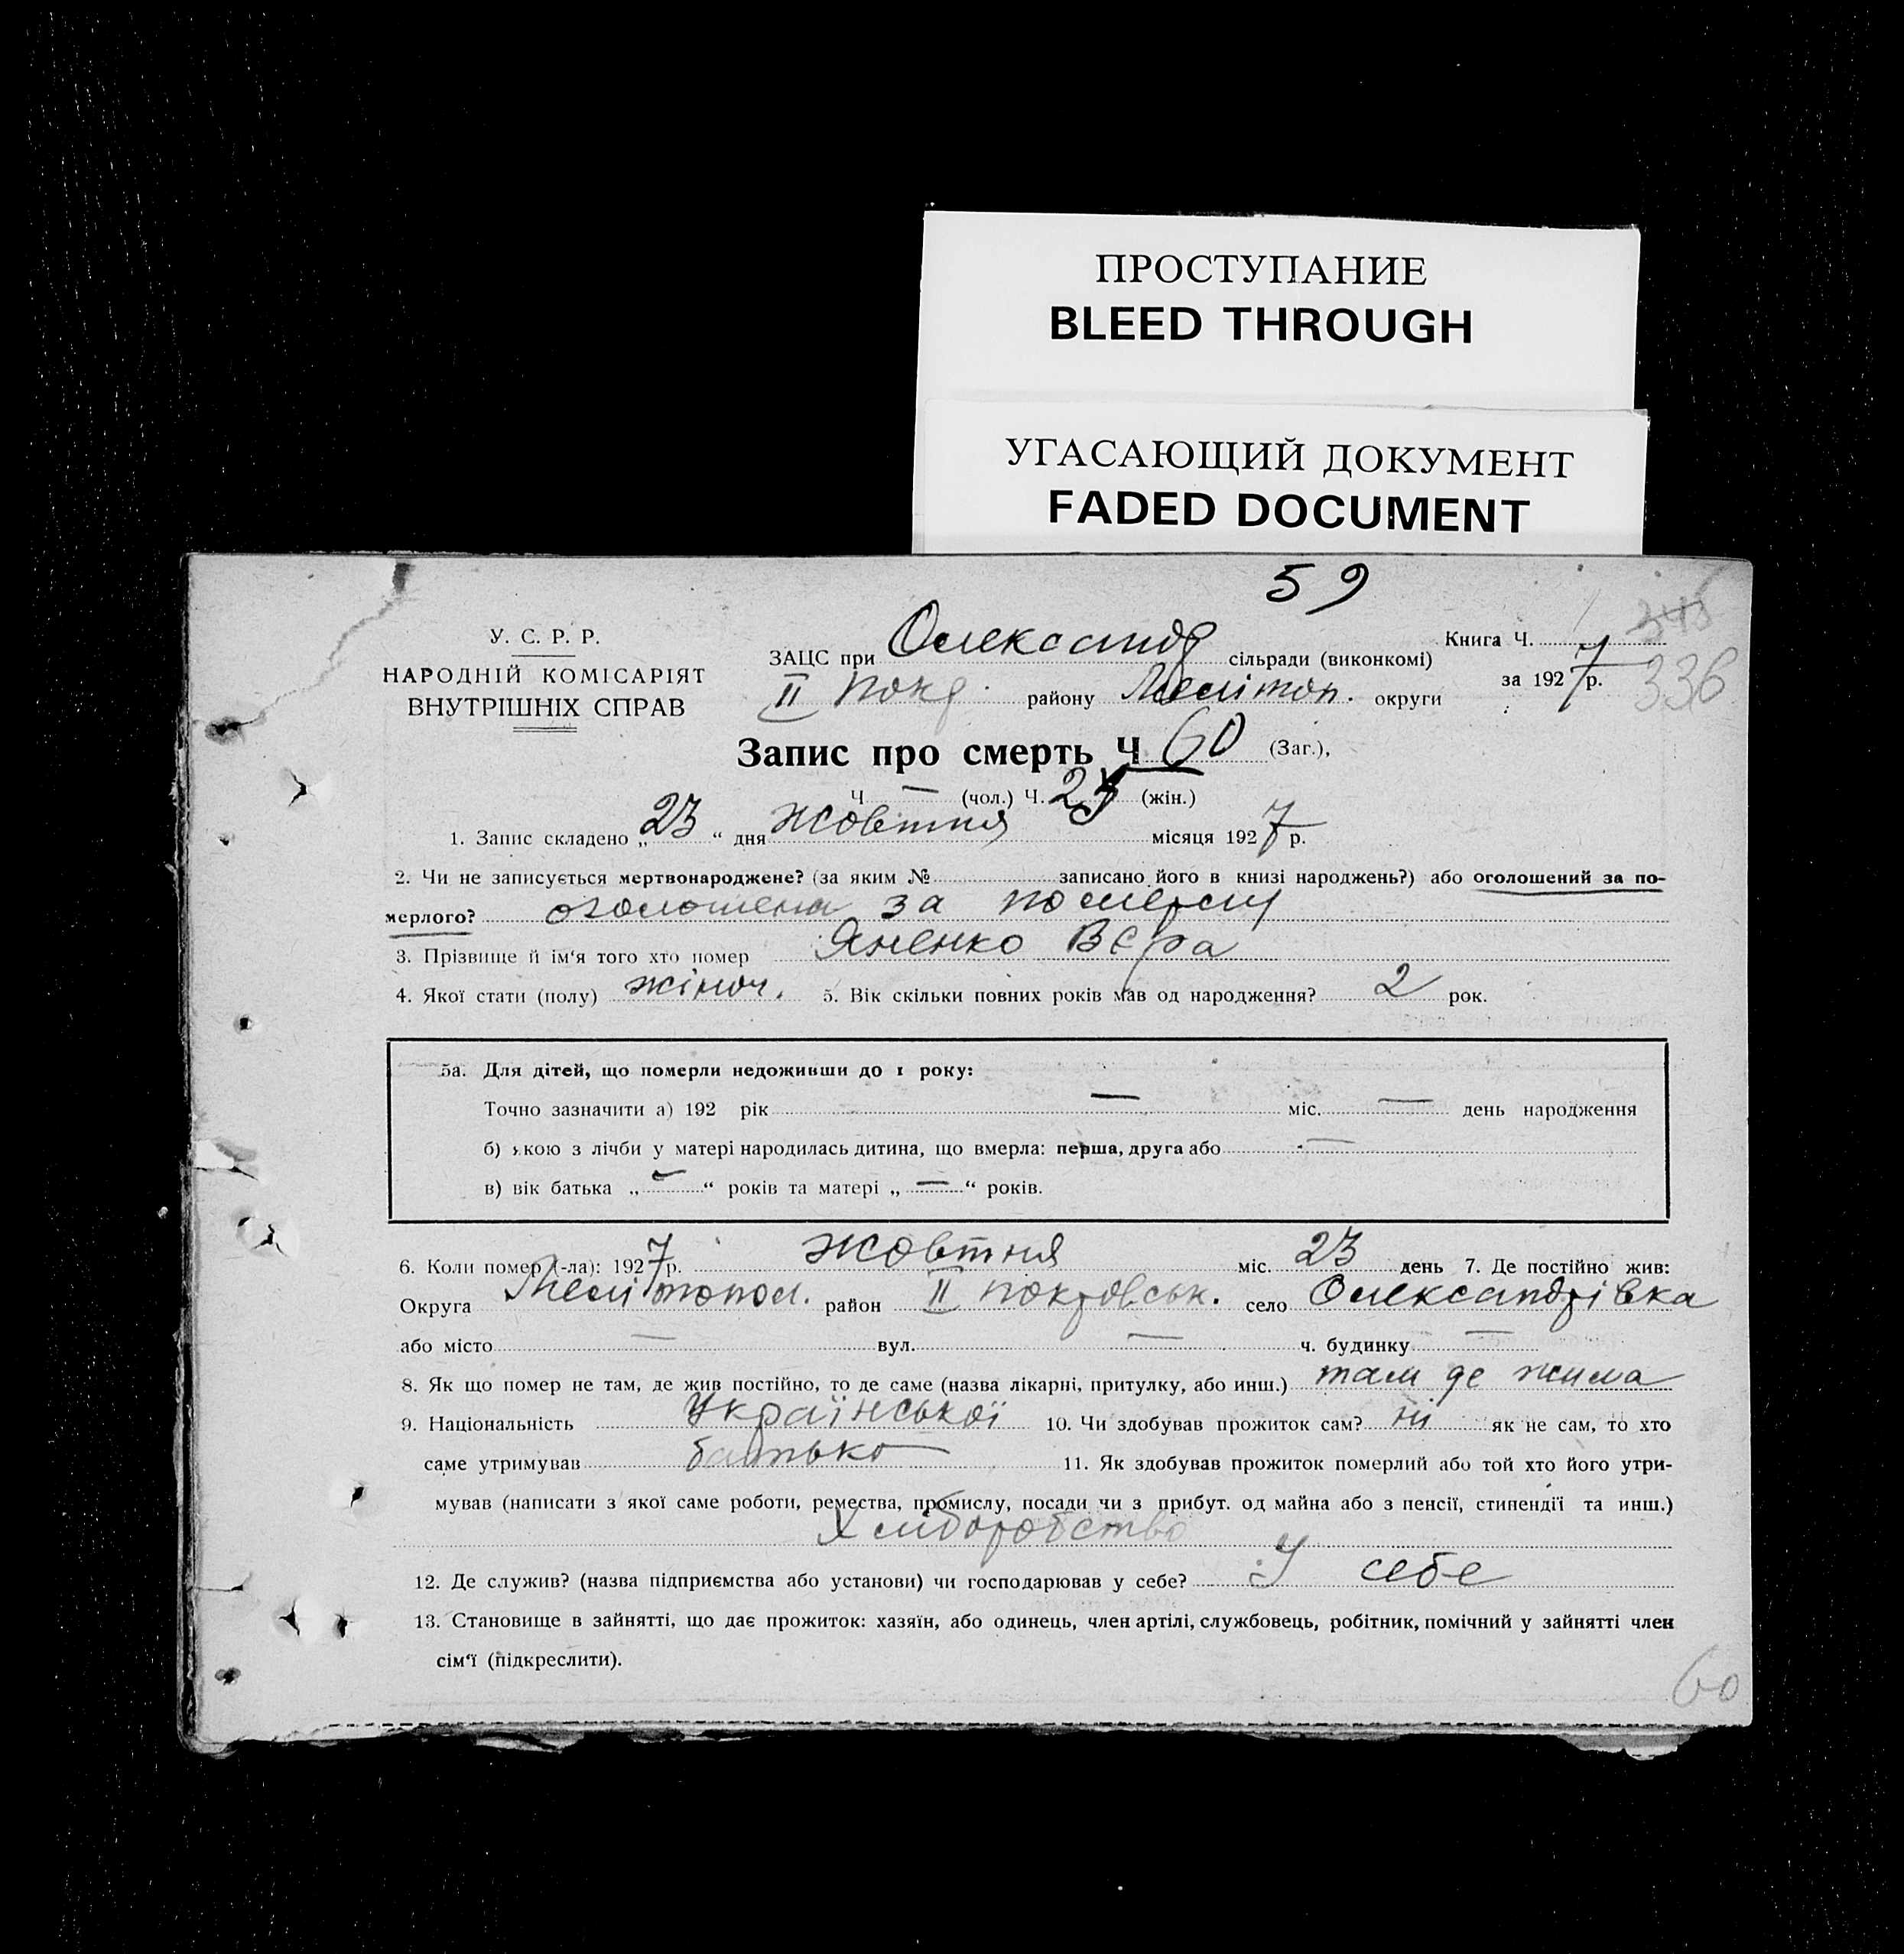 ПРОСТУПАНИЕ
BLEED THROUGH
УГАСАЮЩИЙ ДОКУМЕНТ
FADED DOCUMENT
59
У. С. Р. Р.
НАРОДНІЙ КОМІСАРІЯТ
ВНУТРІШНІХ СПРАВ
Книга Ч. 345
ЗАЦС при Олександр сільради (виконкомі)
за 1927 р. 336
II Покр. району Меліт­оп. округи
Запис про смерть Ч 60 (Заг.),
Ч — (чол.) Ч. (жін.)
1. Запис складено „23“ дня жовтня місяця 1927 р.
2. Чи не записується мертвонароджене? (за яким № записано його в книзі народжень?) або оголошений за по-
мерлого? оголошена за померлу
3. Прізвище й ім'я того хто помер Яненко Вєра
4. Якої стати (полу) жіноч. 5. Вік скільки повних років мав од народження? 2 рок.
5а. Для дітей, що померли недоживши до 1 року:
Точно зазначити а) 192 рік — міс. — день народження
б) якою з лічби у матері народилась дитина, що вмерла: перша, друга або —
в) вік батька „—“ років та матері „—“ років.
6. Коли помер (-ла): 1927 р. жовтня міс. 23 день 7. Де постійно жив:
Округа Мелітопол. район II покровськ. село Олександрівка
або місто — вул. — ч. будинку —
8. Як що помер не там, де жив постійно, то де саме (назва лікарні, притулку, або инш.) там де жила
9. Національність Української 10. Чи здобував прожиток сам? ні як не сам, то хто
саме утримував батько 11. Як здобував прожиток померлий або той хто його утри-
мував (написати з якої саме роботи, ремества, промислу, посади чи з прибут. од майна або з пенсії, стипендії та инш.)
Хліборобство
12. Де служив? (назва підприємства або установи) чи господарював у себе? У себе
13. Становище в зайнятті, що дає прожиток: хазяїн, або одинець, член артілі, службовець, робітник, помічний у зайнятті член
сім'ї (підкреслити).
60